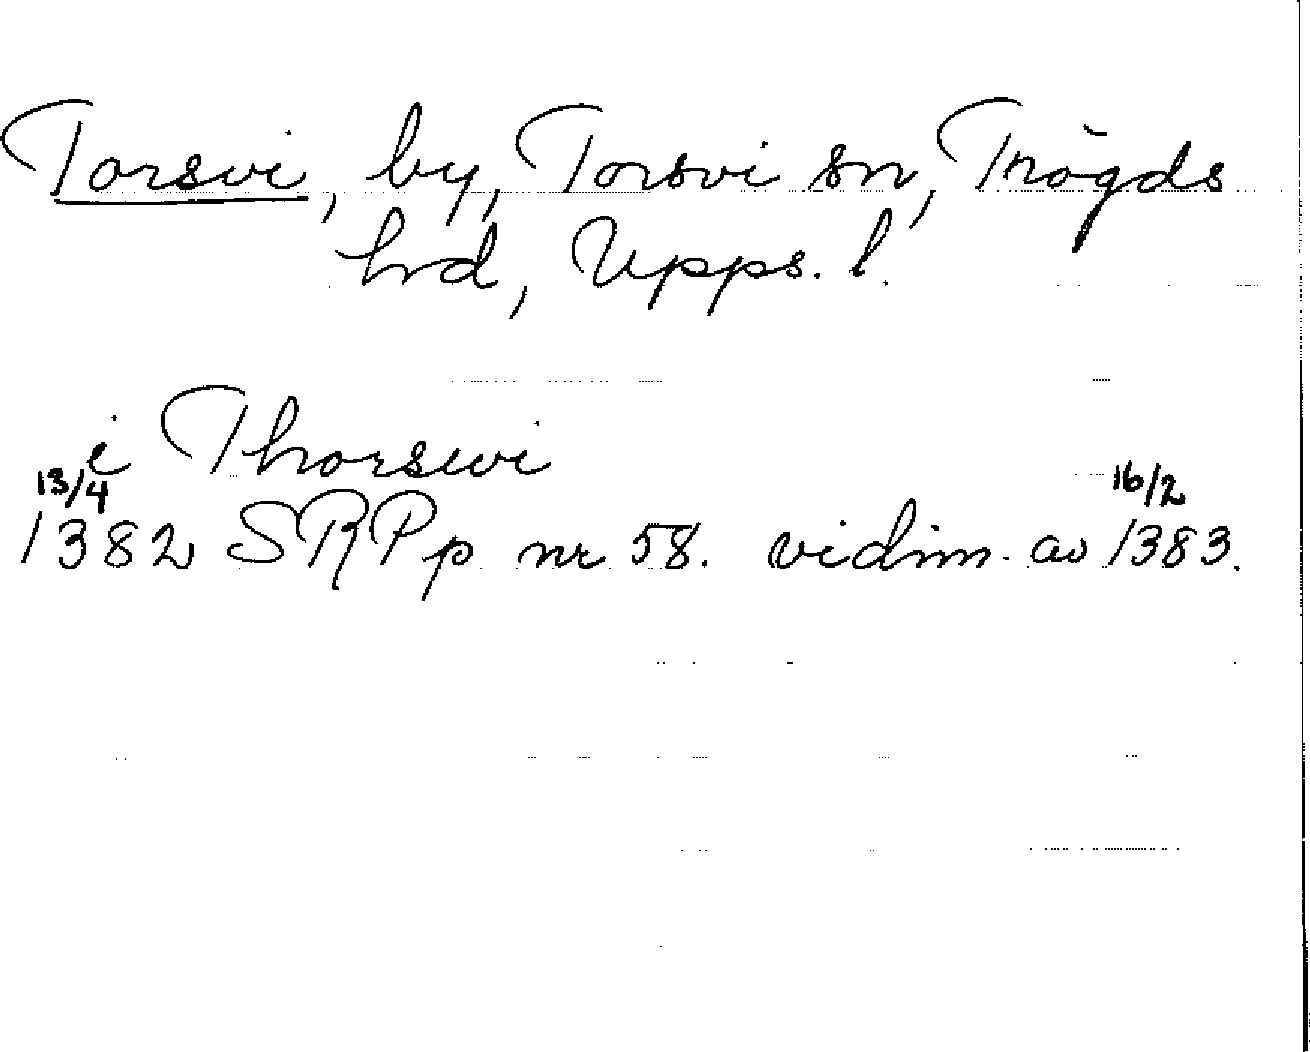 Torsvi, by, Torsvi sn, Trögds
hrd, Upps. l.
i Thorswi
13/4 1382 SRPp nr 58. vidim. av 16/2 1383.